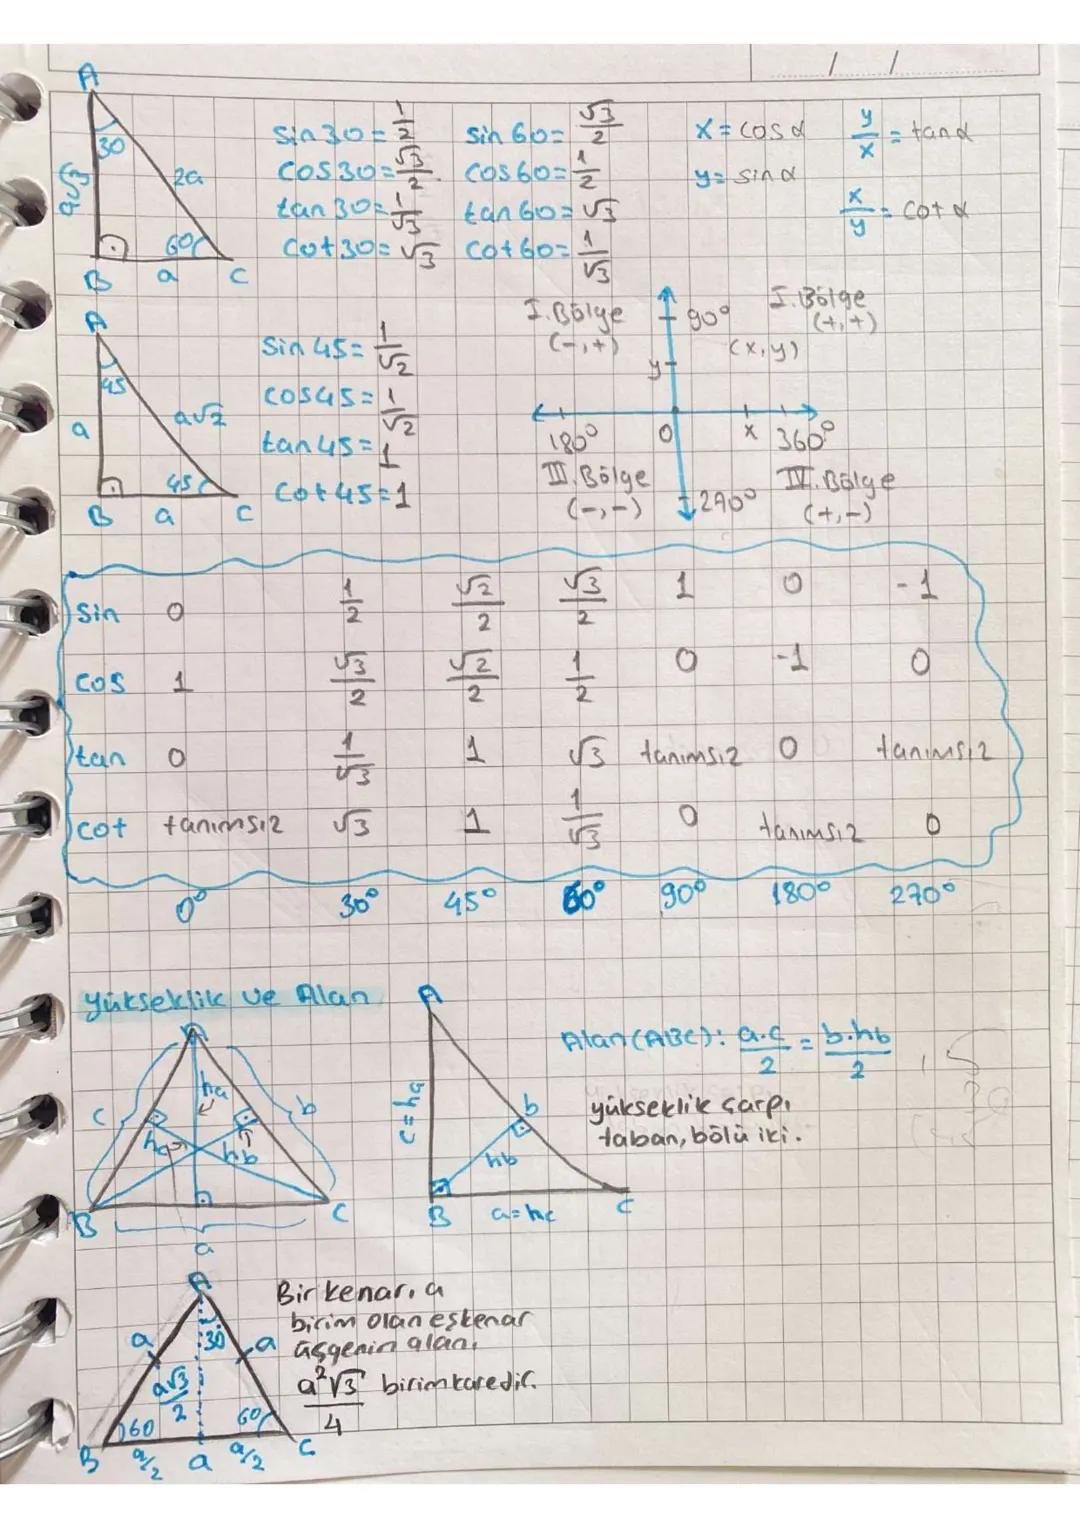 / /
A
30
a√3
2a
60
B a C
sin30=1/2
cos30=√3/2
tan30=1/√3
cot30=√3
sin60=√3/2
cos60=1/2
tan60=√3
cot60=1/√3
x=cosα
y=sinα
y/x=tanα
x/y=cotα
A
45
a
a√2
45
B a C
sin45=1/√2
cos45=1/√2
tan45=1
cot45=1
I.Bölge
(-,+)
90°
I.Bölge
(+,+)
(x,y)
y
180°
0
x
360°
III.Bölge
(-,-)
270°
IV.Bölge
(+,-)
sin 0 1/2 √2/2 √3/2 1 0 -1
cos 1 √3/2 √2/2 1/2 0 -1 0
tan 0 1/√3 1 √3 tanımsız 0 tanımsız
cot tanımsız √3 1 1/√3 0 tanımsız 0
0° 30° 45° 60° 90° 180° 270°
yükseklik ve Alan
A
ha
c
b
hc
hb
B
C
a
A
c=ha
b
hb
B a=hc C
Alan(ABC): a.c/2 = b.hb/2
yükseklik çarpı
taban, bölü iki.
A
30
a
a
a√3/2
60
60
B a/2 a a/2 C
Bir kenarı a
birim olan eşkenar
üçgenin alanı
a²√3/4 birimkaredir.